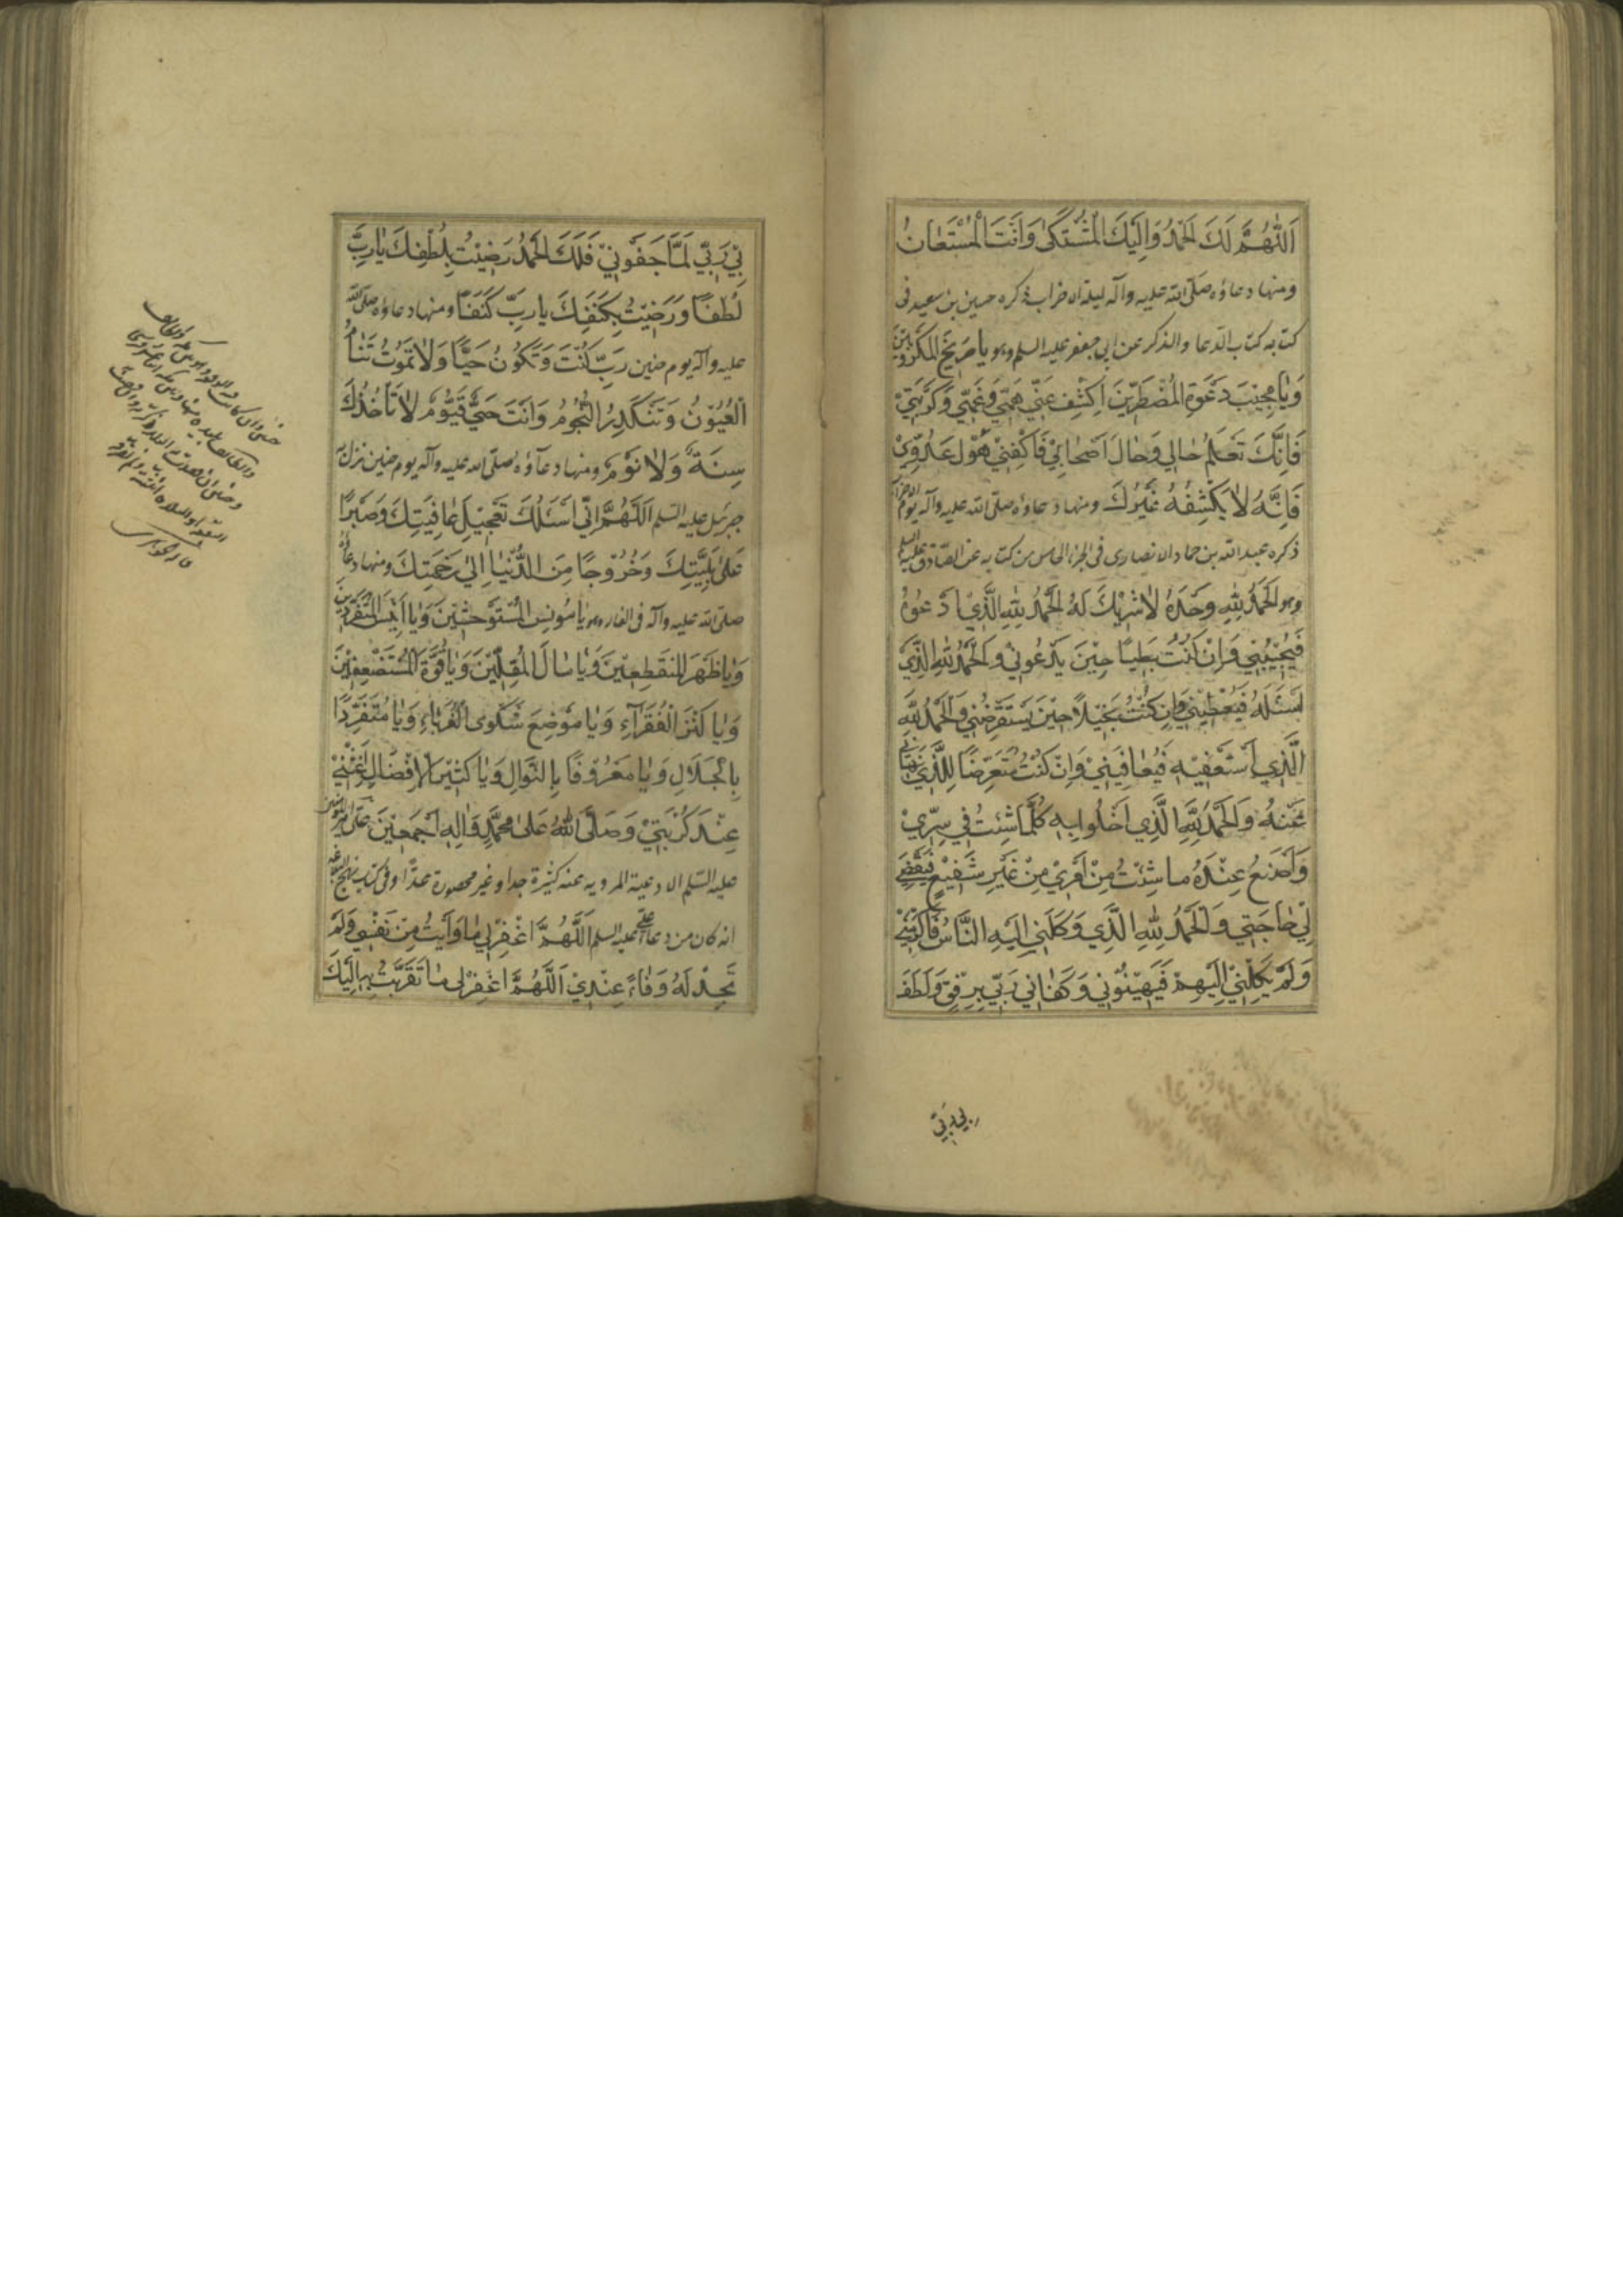 اَللّٰهُمَّ لَكَ الْحَمْدُ وَاِلَيْكَ الْمُشْتَكىٰ وَاَنْتَ الْمُسْتَعٰانُ
ومنها دعاؤه صلّى الله عليه وآله ليلة الاحزاب ذكره حسين بن سعيد فى
كتابه كتاب الدعا والذكر عن ابى جعفر عليه السلم وهو يا صَريخَ الْمَكْرُوبينَ
وَيٰا مُجيبَ دَعْوَةِ الْمُضْطَرّينَ اِكْشِفْ عَنّي هَمّي وَغَمّي وَكُرْبَتي
فَاِنَّكَ تَعْلَمُ حٰالي وَحٰالَ اَصْحٰابي فَاكْفِني هَوْلَ عَدُوّي
فَاِنَّهُ لاٰ يَكْشِفُهُ غَيْرُكَ ومنها دعاؤه صلّى الله عليه وآله يوم الاحزاب
ذكره عبد الله بن حماد الانصارى فى الجزء الخامس من كتابه عن الصّادق عليه السلم
وهو اَلْحَمْدُ لِلّٰهِ وَحْدَهُ لاٰ شَريكَ لَهُ اَلْحَمْدُ لِلّٰهِ الَّذي اَدْعُوهُ
فَيُجيبُني وَاِنْ كُنْتُ بَطيئًا حينَ يَدْعُوني وَالْحَمْدُ لِلّٰهِ الَّذي
اَسْئَلُهُ فَيُعْطيني وَاِنْ كُنْتُ بَخيلًا حينَ يَسْتَقْرِضُني وَالْحَمْدُ لِلّٰهِ
الَّذي اَسْتَعْفيهِ فَيُعٰافيني وَاِنْ كُنْتُ مُتَعَرِّضًا لِلَّذي نَهٰاني
عَنْهُ وَالْحَمْدُ لِلّٰهِ الَّذي اَخْلُو بِهِ كُلَّمٰا شِئْتُ في سِرّي
وَاَصْنَعُ عِنْدَهُ مٰا شِئْتُ مِنْ اَمْري مِنْ غَيْرِ شَفيعٍ فَيَقْضي
لي حٰاجَتي وَالْحَمْدُ لِلّٰهِ الَّذي وَكَلَني اِلَيْهِ النّٰاسُ فَاَكْرَمَني
وَلَمْ يَكِلْني اِلَيْهِمْ فَيُهينُوني وَكَفٰاني رَبّي بِرِفْقٍ وَلَطَفَ
بي ربّي
بي رَبّي لَمّٰا جَفَوْني فَلَكَ الْحَمْدُ رَضيتُ بِلُطْفِكَ يٰا رَبِّ
لُطْفًا وَرَضيتُ بِكَنَفِكَ يا رَبِّ كَنَفًا ومنها دعاؤه صلى الله
عليه وآله يوم حنين رَبِّ كُنْتَ وَتَكُونُ حَيًّا وَلاٰ تَمُوتُ تَنٰامُ
الْعُيُونُ وَتَنْكَدِرُ النُّجُومُ وَاَنْتَ حَيٌّ قَيُّومٌ لاٰ تَأْخُذُكَ
سِنَةٌ وَلاٰ نَوْمٌ ومنها دعاؤه صلّى الله عليه وآله يوم حنين نزل به
جبرئيل عليه السلم اَللّٰهُمَّ اِنّي اَسْئَلُكَ تَعْجيلَ عٰافِيَتِكَ وَصَبْرًا
عَلىٰ بَلِيَّتِكَ وَخُرُوجًا مِنَ الدُّنْيٰا اِلىٰ رَحْمَتِكَ ومنها دعاؤه
صلّى الله عليه وآله فى الغار وهو يٰا مُونِسَ الْمُسْتَوْحِشينَ وَيٰا اَنيسَ الْمُتَفَرِّدينَ
وَيٰا ظَهْرَ الْمُنْقَطِعينَ وَيٰا مٰالَ الْمُقِلّينَ وَيٰا قُوَّةَ الْمُسْتَضْعَفينَ
وَيٰا كَنْزَ الْفُقَرٰاءِ وَيٰا مَوْضِعَ شَكْوَى الْغُرَبٰاءِ وَيٰا مُتَفَرِّدًا
بِالْجَلاٰلِ وَيٰا مَعْرُوفًا بِالنَّوٰالِ وَيٰا كَثيرَ الْاِفْضٰالِ اَغِثْني
عِنْدَ كُرْبَتي وَصَلَّى اللّٰهُ عَلىٰ مُحَمَّدٍ وَاٰلِهِ اَجْمَعينَ
عليه السّلم الادعية المرويه عنه كثيرة جدا وغير محصورة عدًّا وفى كتاب نهج البلاغه
انه كان من دعاء على عليه السلم اَللّٰهُمَّ اغْفِرْ لي مٰا وَاَيْتُ مِنْ نَفْسي وَلَمْ
تَجِدْ لَهُ وَفٰاءً عِنْدي اَللّٰهُمَّ اغْفِرْ لي مٰا تَقَرَّبْتُ بِهِ اِلَيْكَ